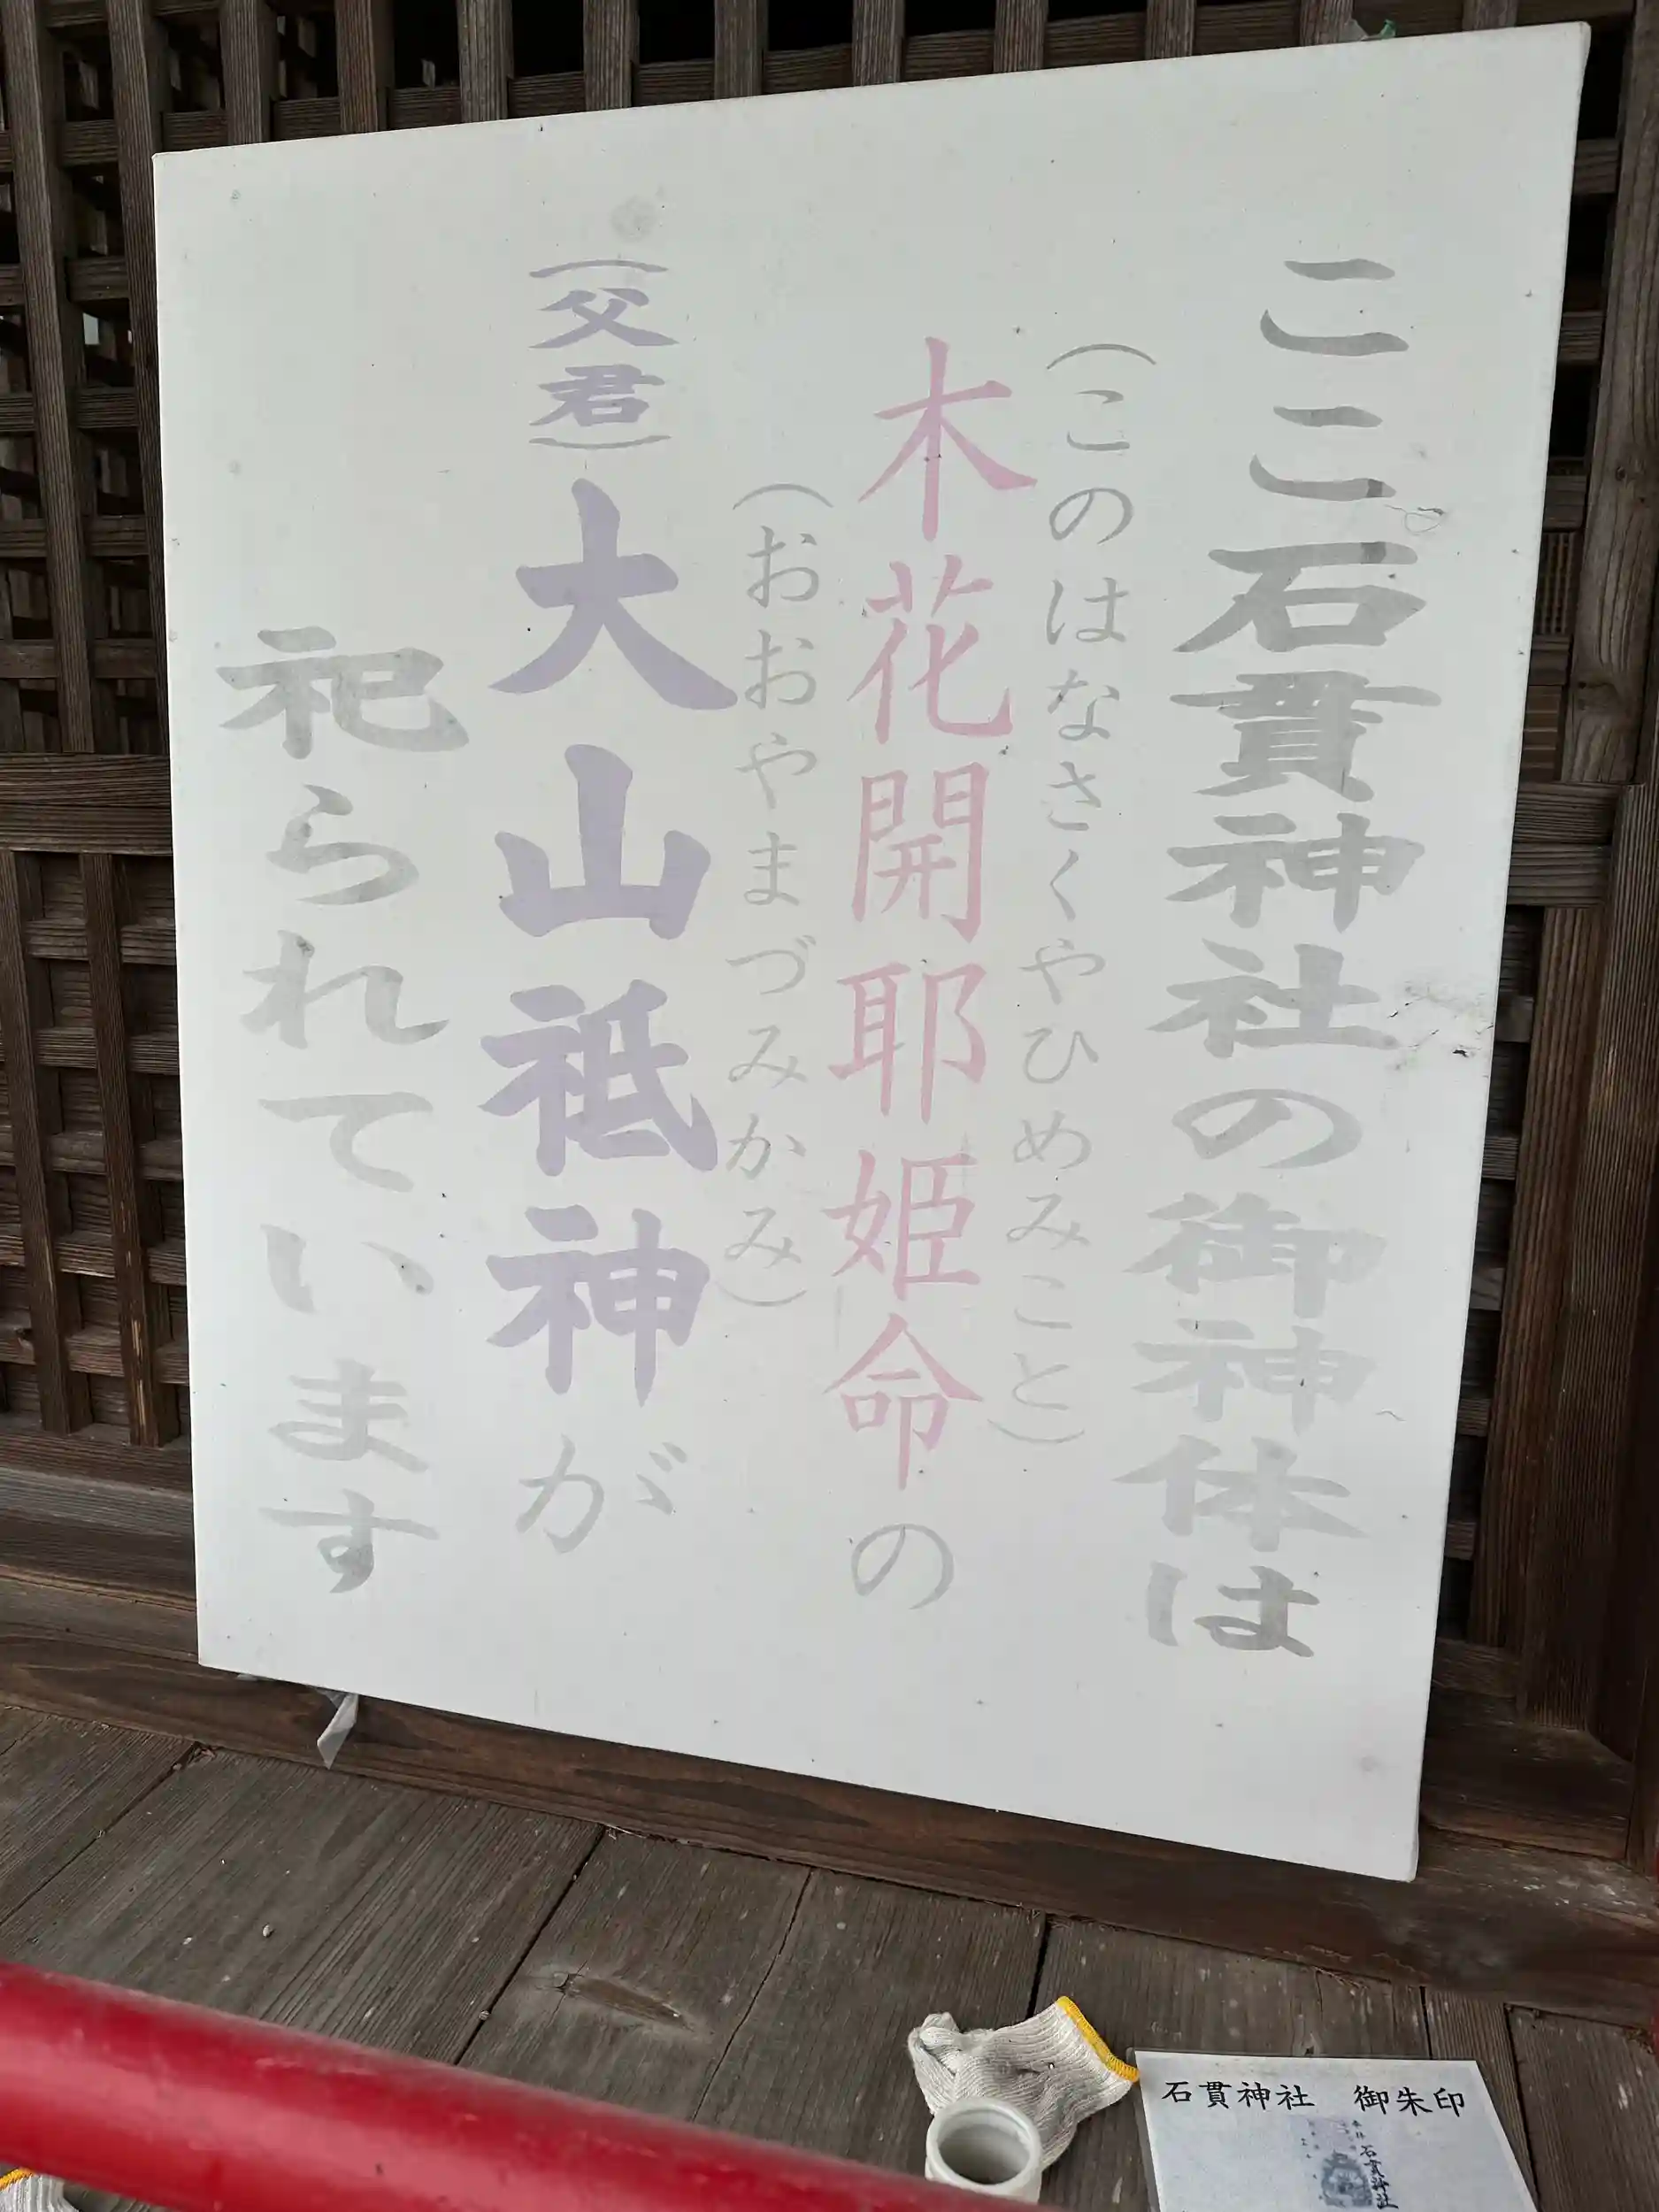 ここ石貫神社の御神体は
(このはなさくやひめみこと)
木花開耶姫命の
(おおやまづみかみ)
(父君)大山祗神が
祀られています
石貫神社 御朱印
石貫神社